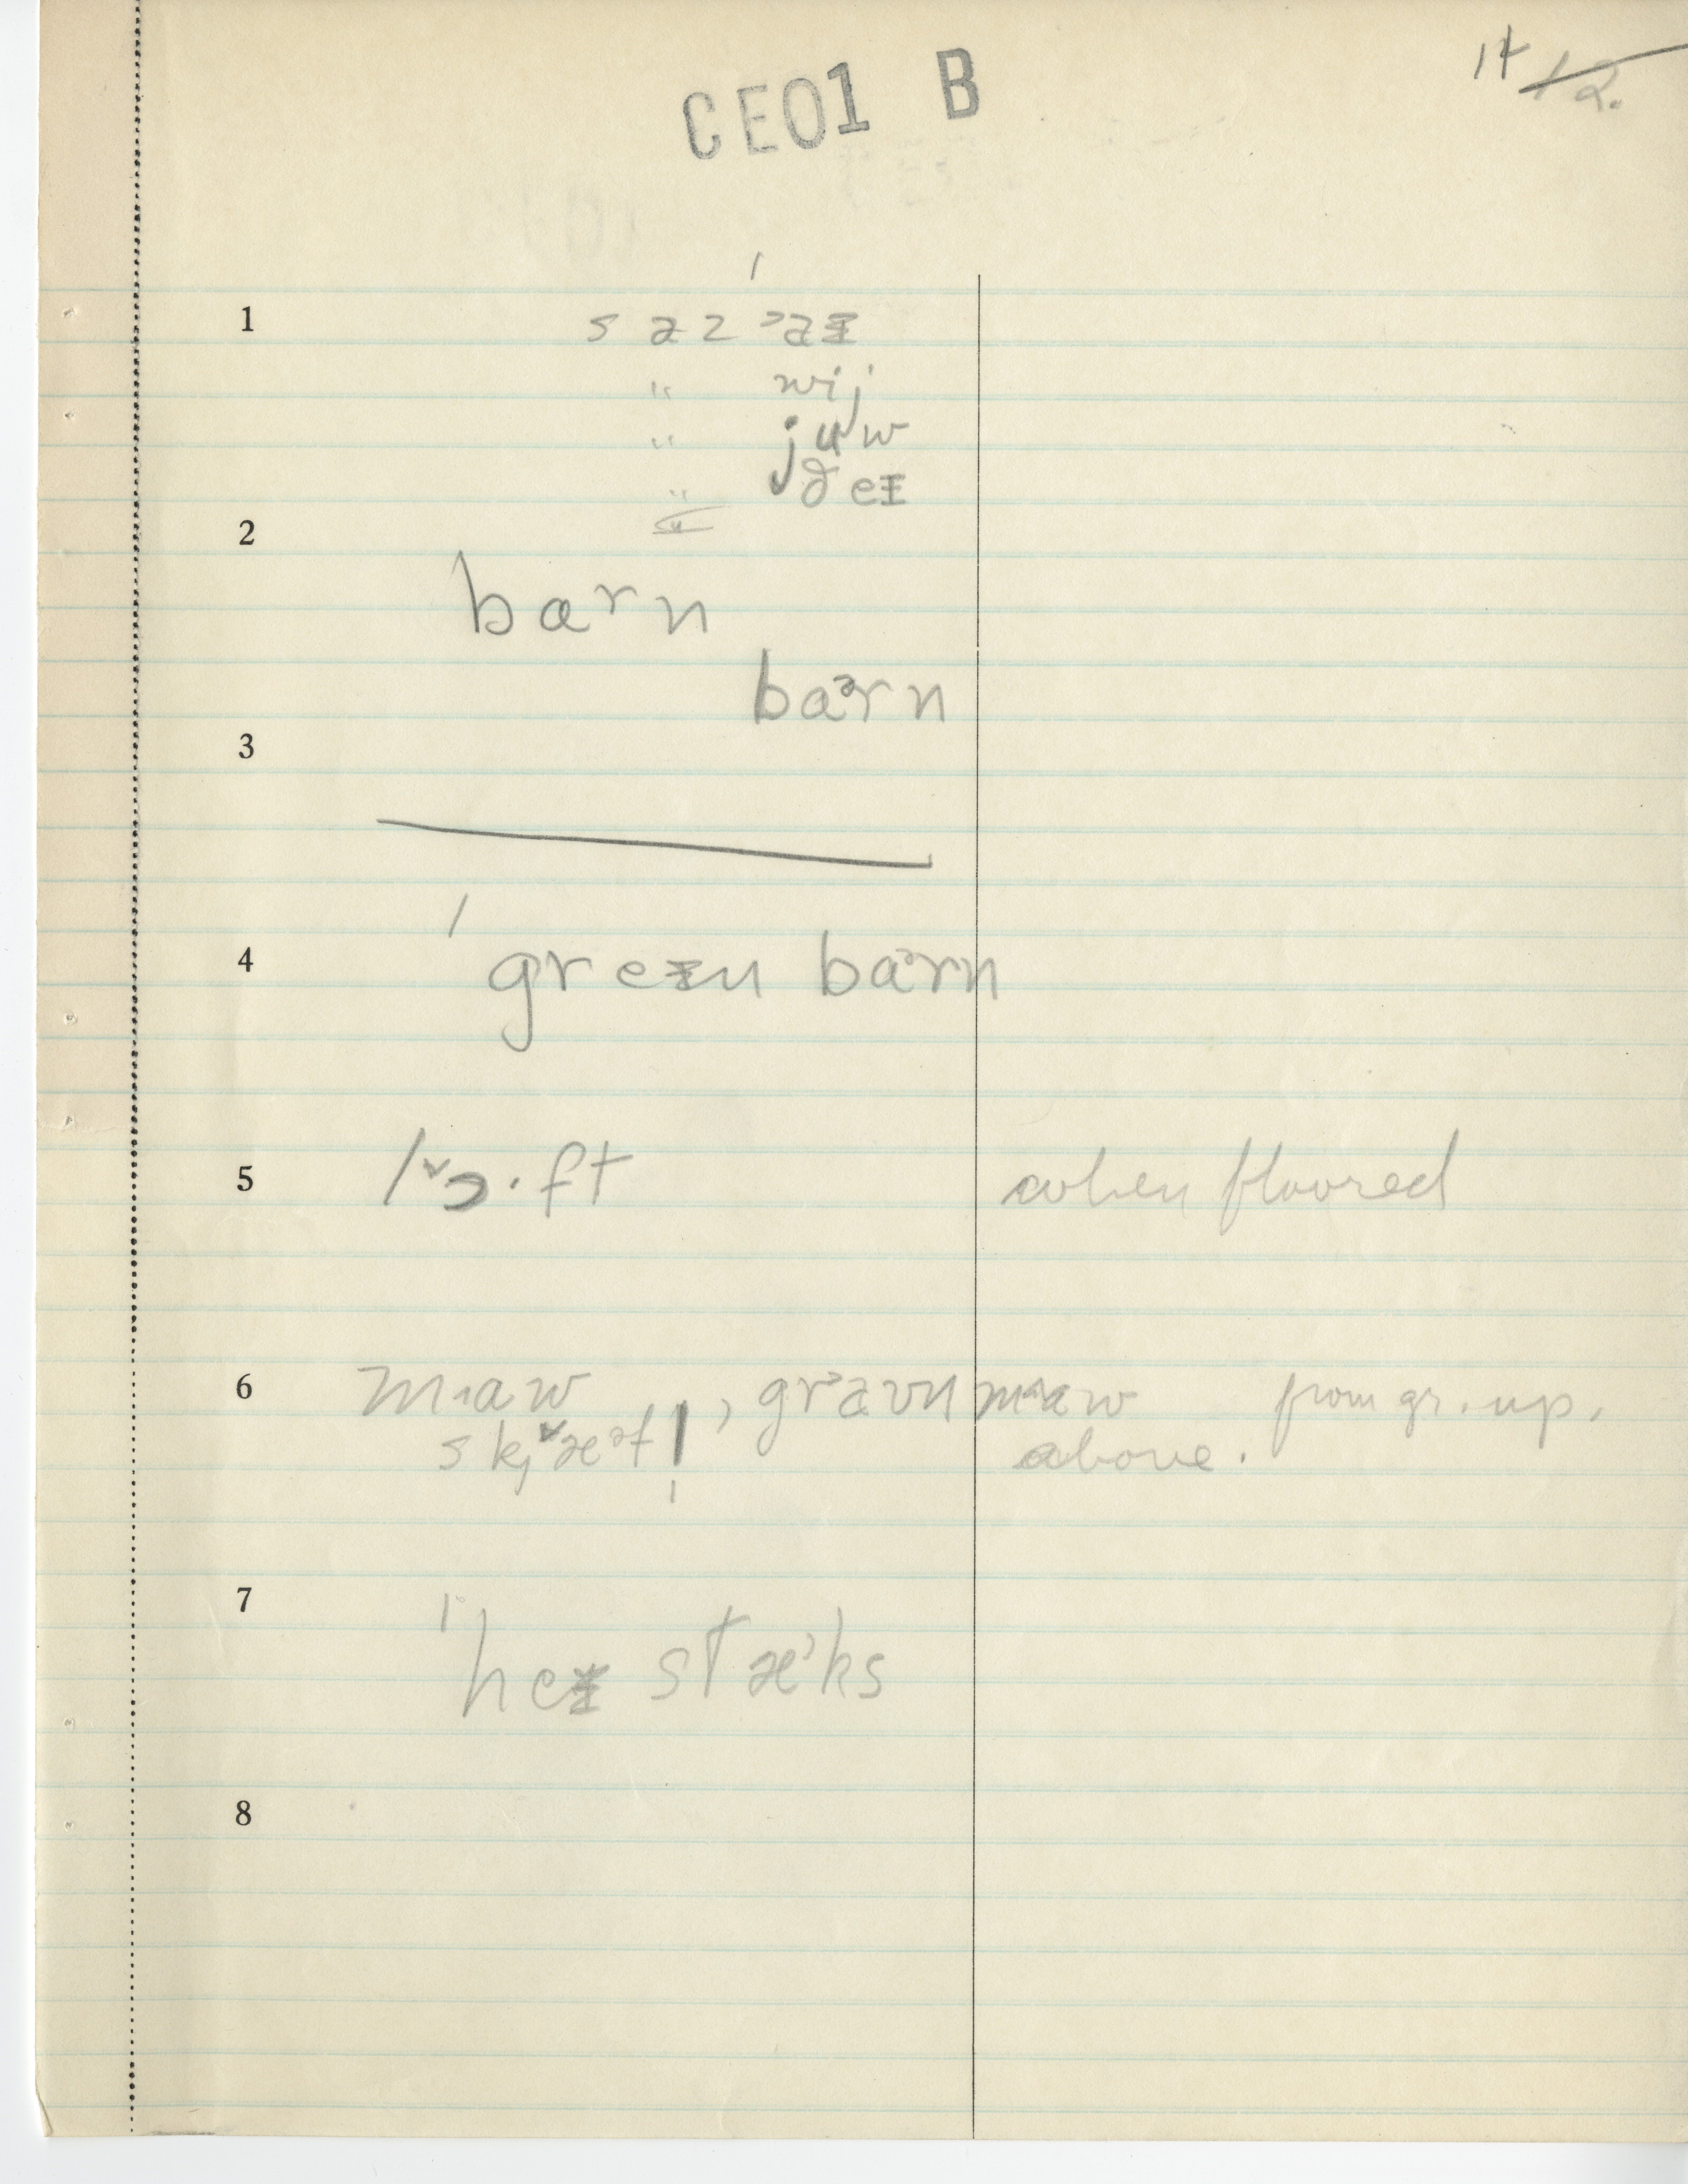 CE01 B
14 12.
1
s ə z ˈəɪ
" wij
" juw
" ðeɪ
2
barn
baᵊrn
3
4
ˈgreɪn baᵊrn
5
lɔ·ft
when floored
6
maw, gravn maw from gr. up.
above.
7
ˈheɪ stæᵊks
8